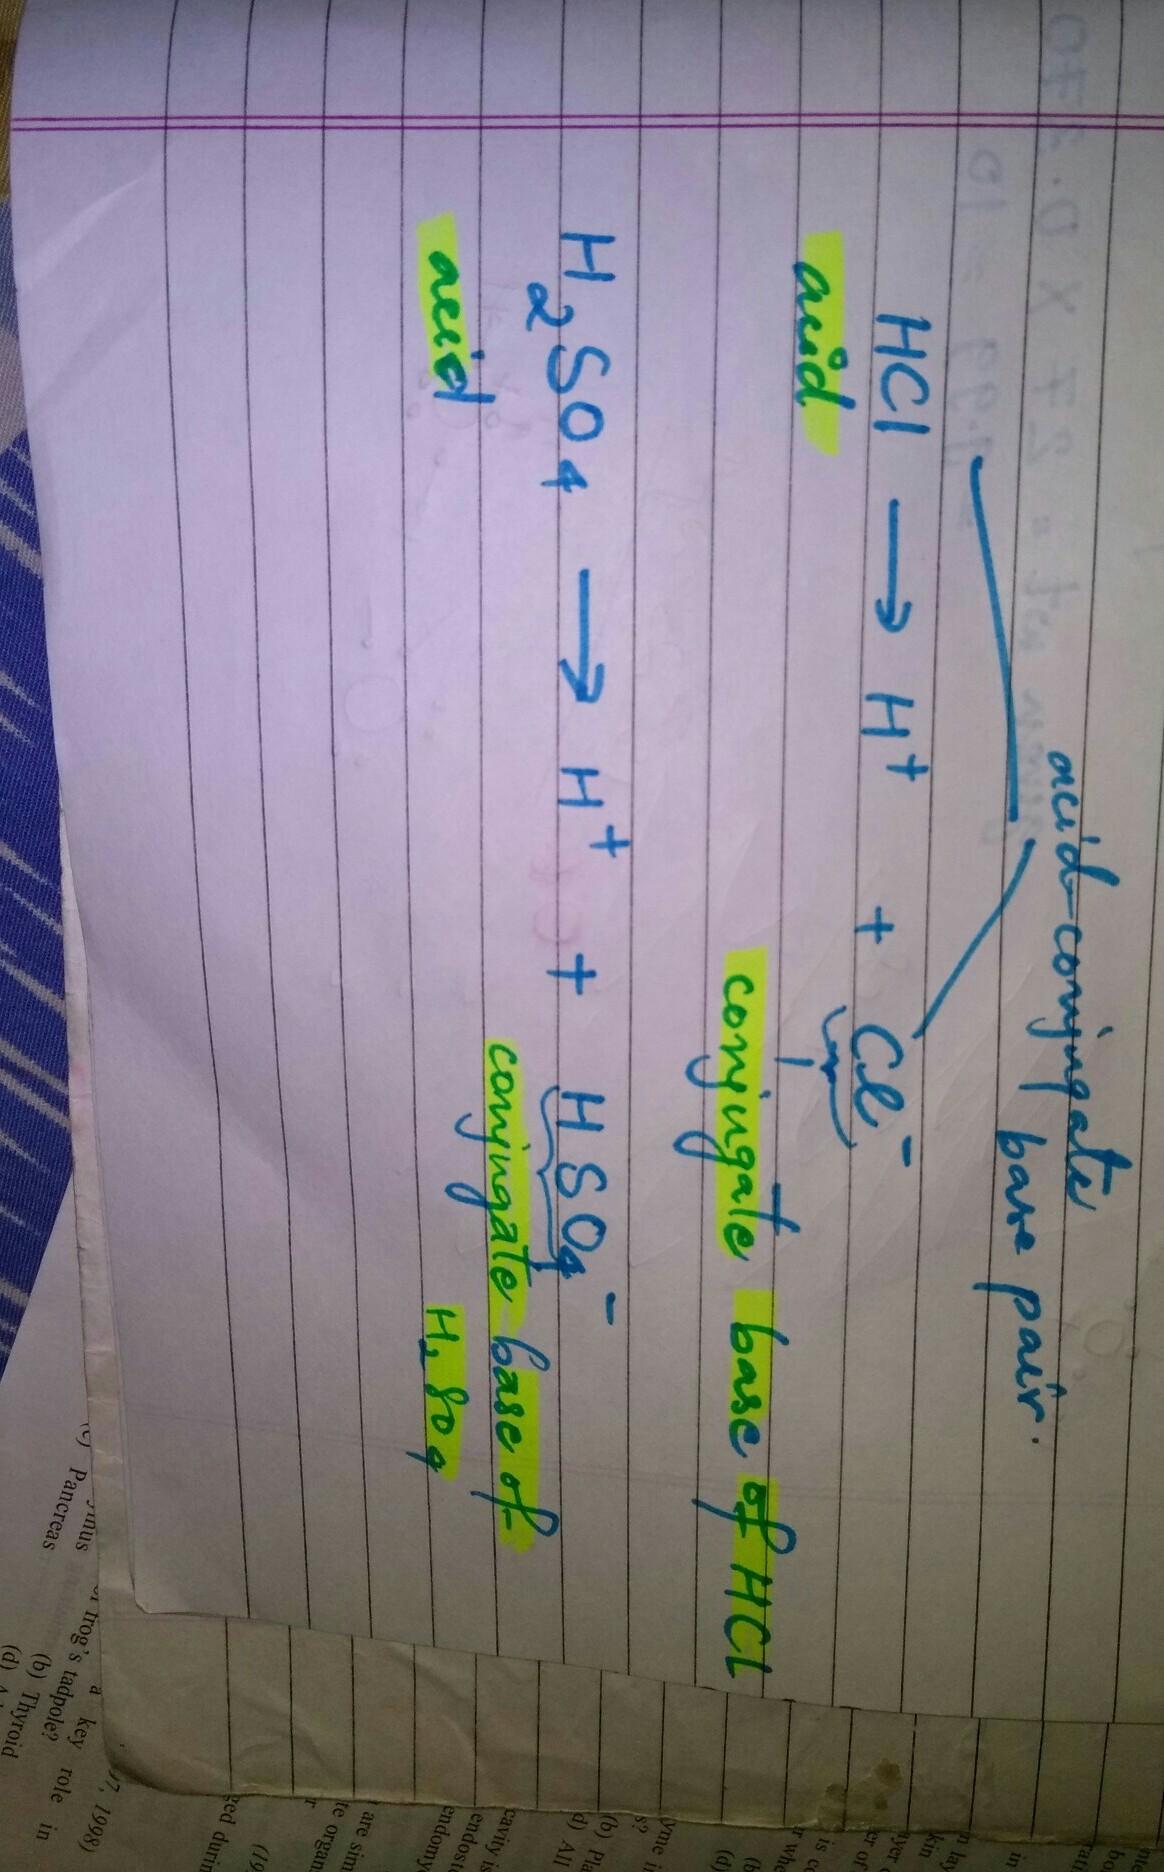 acid-conjugate
base pair.
HCl → H⁺ + Cl⁻
acid
conjugate base of HCl
H₂SO₄ → H⁺ + HSO₄⁻
acid
conjugate base of
H₂SO₄
(c) Pancreas
frog's tadpole?
a key role in
(b) Thyroid
(d)
1998)